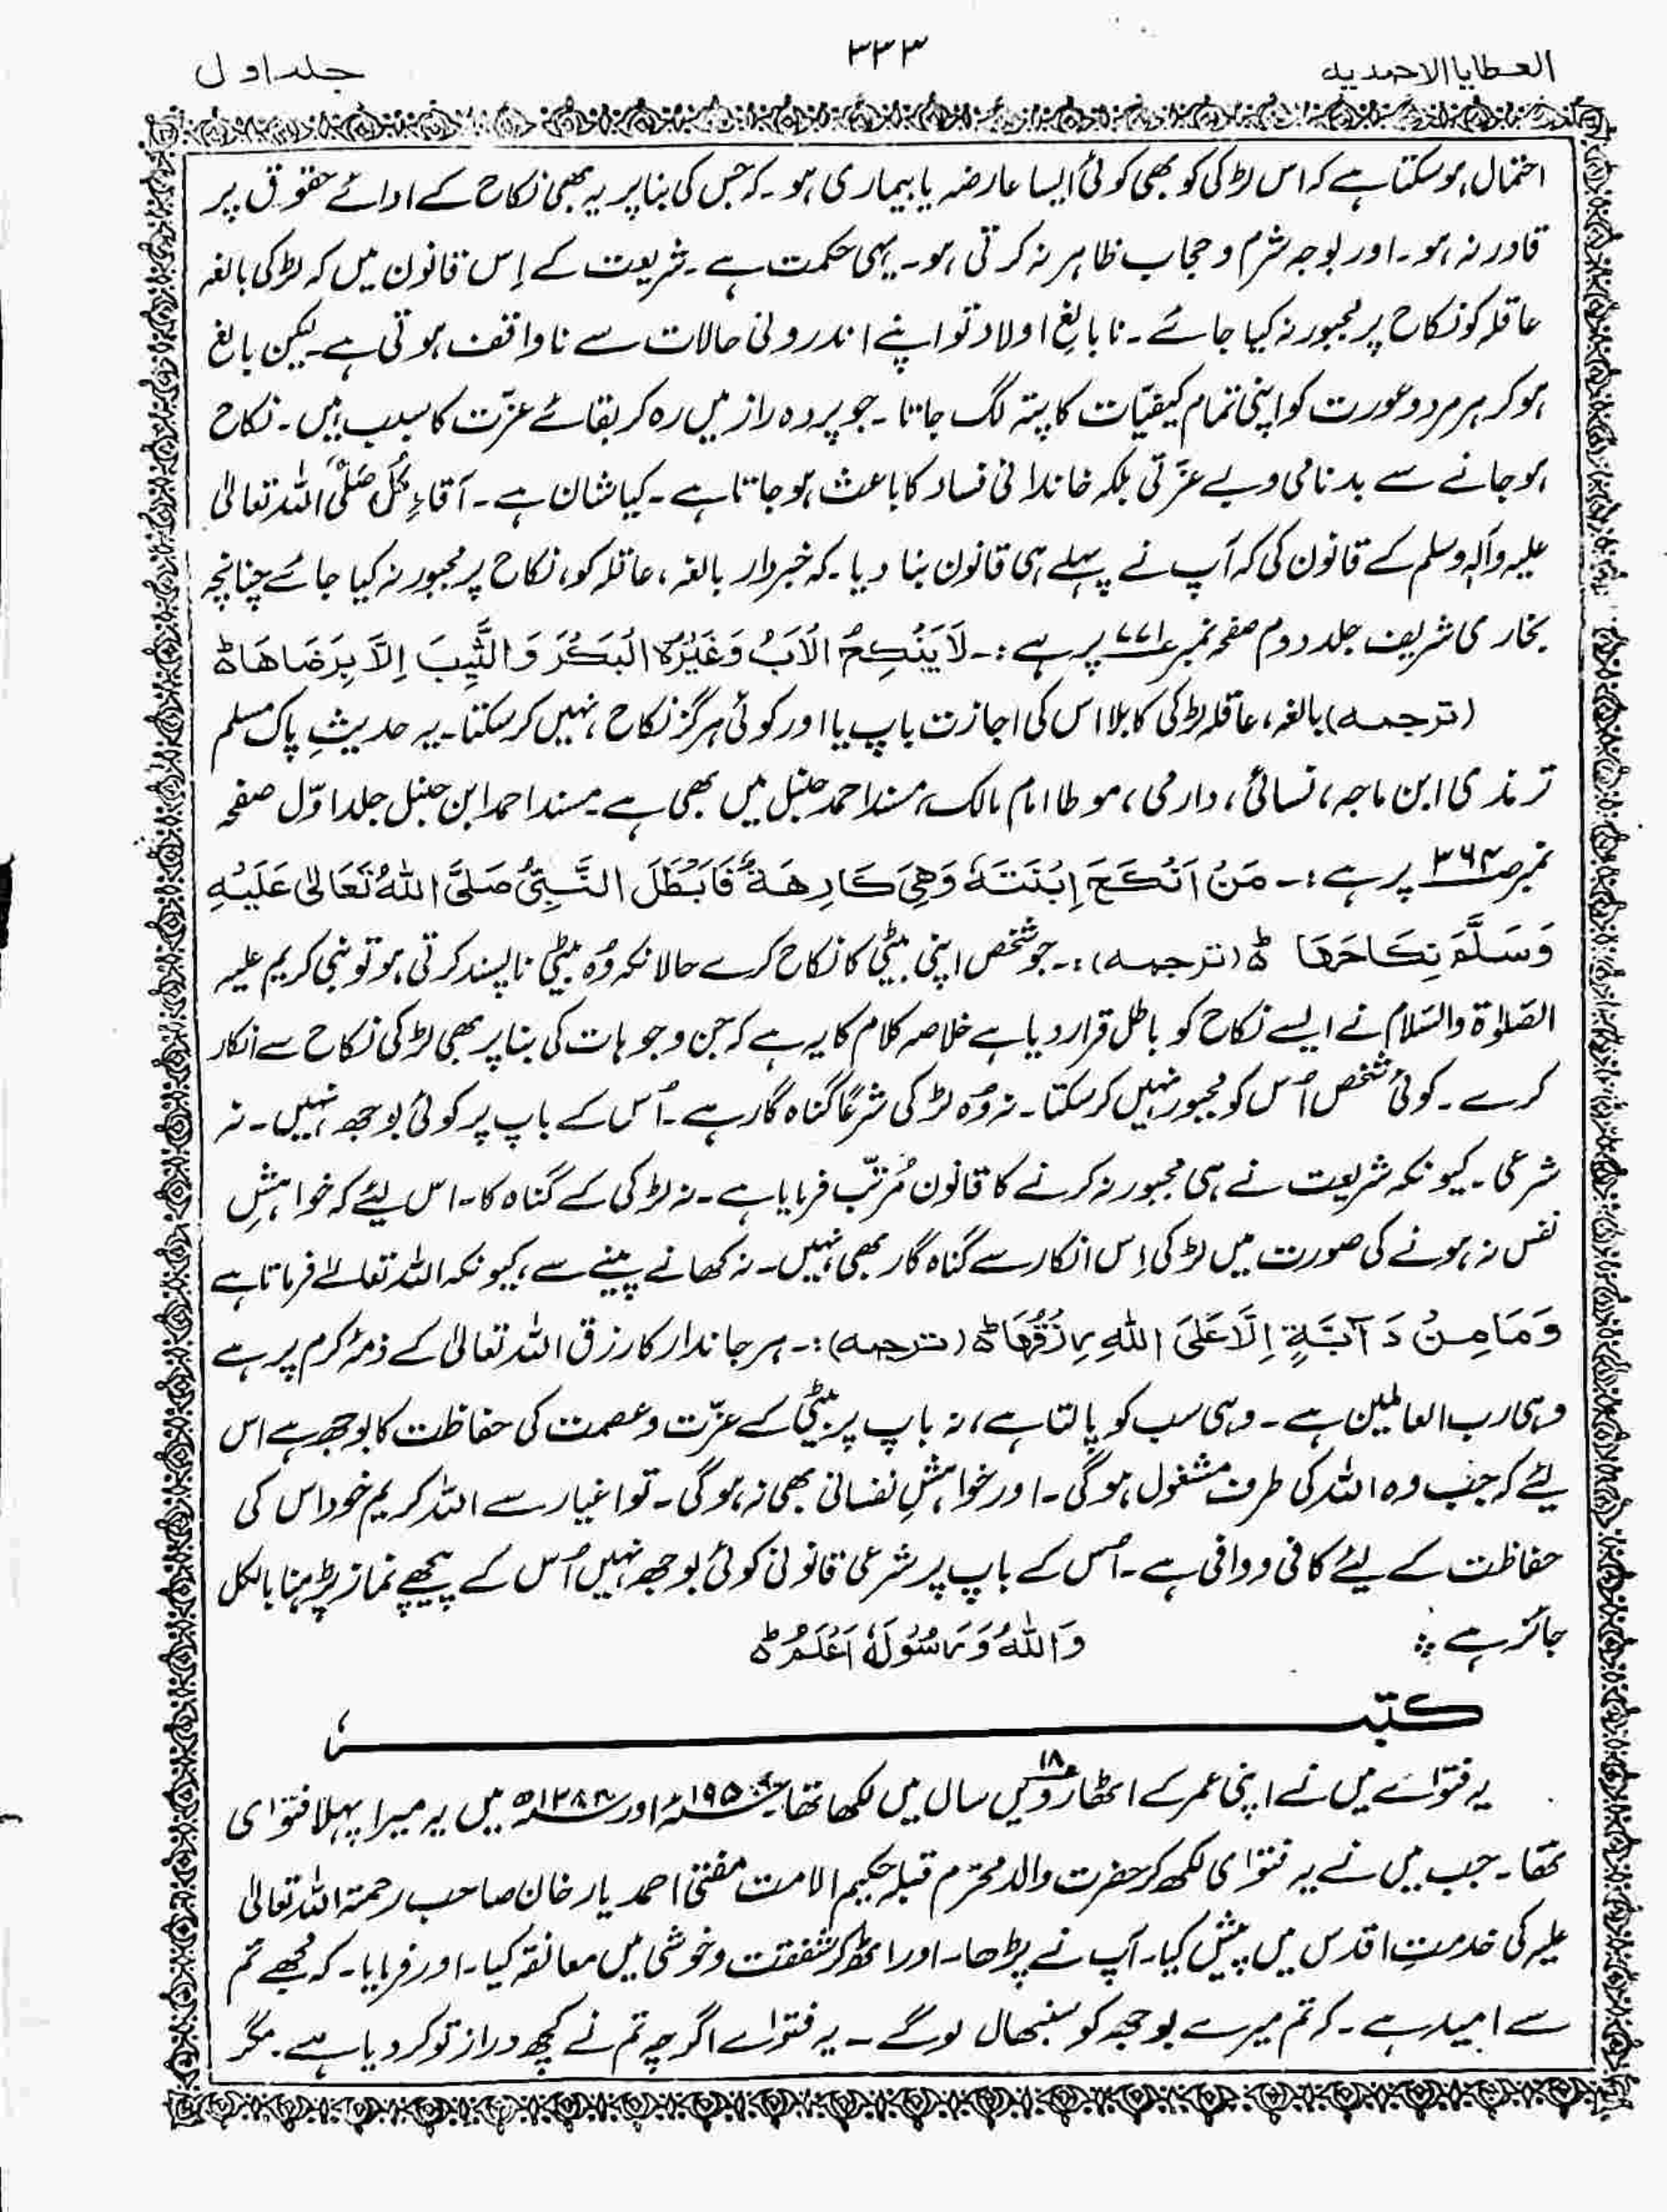 العطایا الاحمدیہ
۳۳۳
جلد اول
احتمال ہو سکتا ہے کہ اس لڑکی کو بھی کوئی ایسا عارضہ یا بیماری ہو۔ کہ جس کی بنا پر یہ بھی نکاح کے ادائے حقوق پر
قادر نہ ہو۔ اور بوجہ شرم و حجاب ظاہر نہ کرتی ہو۔ یہی حکمت ہے۔ شریعت کے اِس قانون میں کہ لڑکی بالغہ
عاقلہ کو نکاح پر مجبور نہ کیا جائے۔ نا بالغ اولاد تو اپنے اندرونی حالات سے ناواقف ہوتی ہے۔ لیکن بالغ
ہو کر ہر مرد و عورت کو اپنی تمام کیفیّات کا پتہ لگ جاتا۔ جو پردہ راز میں رہ کر بقائے عزّت کا سبب ہیں۔ نکاح
ہو جانے سے بدنامی و بے عزّتی بلکہ خاندانی فساد کا باعث ہو جاتا ہے۔ کیا شان ہے۔ آقاءِ کُل صَلَّی اللہ تعالیٰ
علیہ وآلہٖ وسلم کے قانون کی کہ آپ نے پہلے ہی قانون بنا دیا۔ کہ خبردار بالغہ، عاقلہ کو، نکاح پر مجبور نہ کیا جائے چنانچہ
بخاری شریف جلد دوم صفحہ نمبر ۷۷۱ پر ہے:۔ لَا یَنْکِحُ الْاَبُ وَغَیْرُہُ الْبَکْرَ وَ الثَّیِبَ اِلاَّ بِرَضَاھَا ط
(ترجمہ) بالغہ، عاقلہ لڑکی کا بلا اس کی اجازت باپ یا اور کوئی ہرگز نکاح نہیں کر سکتا۔ یہ حدیثِ پاک مسلم
ترمذی ابن ماجہ، نسائی، دارمی، موطا امام مالک، مسند احمد حنبل میں بھی ہے۔ مسند احمد ابن حنبل جلد اوّل صفحہ
نمبر ص ۳۶۴ پر ہے:۔ مَنْ اَنْکَحَ اِبْنَتَہٗ وَھِیَ کَارِھَۃٌ فَاَبْطَلَ النَّبِیُّ صَلَّی اللّٰہُ تَعَالٰی عَلَیْہِ
وَسَلَّمَ نِکَاحَھَا ط (ترجمہ):۔ جو شخص اپنی بیٹی کا نکاح کرے حالانکہ وُہ بیٹی نا پسند کرتی ہو تو نبی کریم علیہ
الصّلوٰۃ والسّلام نے ایسے نکاح کو باطل قرار دیا ہے خلاصہ کلام کا یہ ہے کہ جن وجوہات کی بنا پر بھی لڑکی نکاح سے انکار
کرے۔ کوئی شخص اُس کو مجبور نہیں کر سکتا۔ نہ وُہ لڑکی شرعًا گناہ گار ہے۔ اُس کے باپ پر کوئی بوجھ نہیں۔ نہ
شرعی۔ کیونکہ شریعت نے ہی مجبور نہ کرنے کا قانون مُرتّب فرمایا ہے۔ نہ لڑکی کے گناہ کا۔ اس لیئے کہ خواہشِ
نفس نہ ہونے کی صورت میں لڑکی اِس انکار سے گناہ گار بھی نہیں۔ نہ کھانے پینے سے، کیونکہ اللہ تعالےٰ فرماتا ہے
وَمَا مِنْ دَآبَّۃٍ اِلَّا عَلَی اللّٰہِ رِزْقُھَا ط (ترجمہ):۔ ہر جاندار کا رزق اللہ تعالیٰ کے ذمّہ کرم پر ہے
وہی رب العالمین ہے۔ وہی سب کو پالتا ہے، نہ باپ پر بیٹی کے عزّت و عصمت کی حفاظت کا بوجھ ہے اس
لئے کہ جب وہ اللہ کی طرف مشغول ہو گی۔ اور خواہشِ نفسانی بھی نہ ہو گی۔ تو اغیار سے اللہ کریم خود اس کی
حفاظت کے لیئے کافی و وافی ہے۔ اُس کے باپ پر شرعی قانونی کوئی بوجھ نہیں اُس کے پیچھے نماز پڑھنا بالکل
جائز ہے ؞ وَاللّٰہُ وَرَسُوْلُہٗ اَعْلَمُ ط
کتبہ
یہ فتوٰے میں نے اپنی عمر کے اٹھارویں ۱۸ سال میں لکھا تھا اور میں یہ میرا پہلا فتوٰی
تھا۔ جب میں نے یہ فتوٰی لکھ کر حضرت والد محترم قبلہ حکیم الامت مفتی احمد یار خان صاحب رحمۃ اللہ تعالیٰ
علیہ کی خدمتِ اقدس میں پیش کیا۔ آپ نے پڑھا۔ اور اٹھ کر شفقت و خوشی میں معانقہ کیا۔ اور فرمایا۔ کہ مجھے تم
سے امید ہے۔ کہ تم میرے بوجھ کو سنبھال لو گے۔ یہ فتوٰے اگرچہ تم نے کچھ دراز تو کر دیا ہے۔ مگر